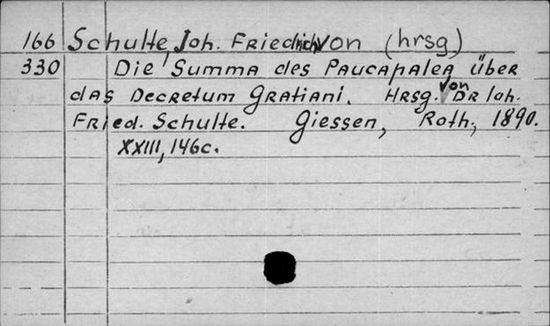 166 Schulte Joh. Friedrich von (hrsg)
330 Die Summa des Paucapalea über
das Decretum Gratiani. Hrsg. von Dr Joh.
Fried. Schulte. Giessen, Roth, 1890.
XXIII, 146c.